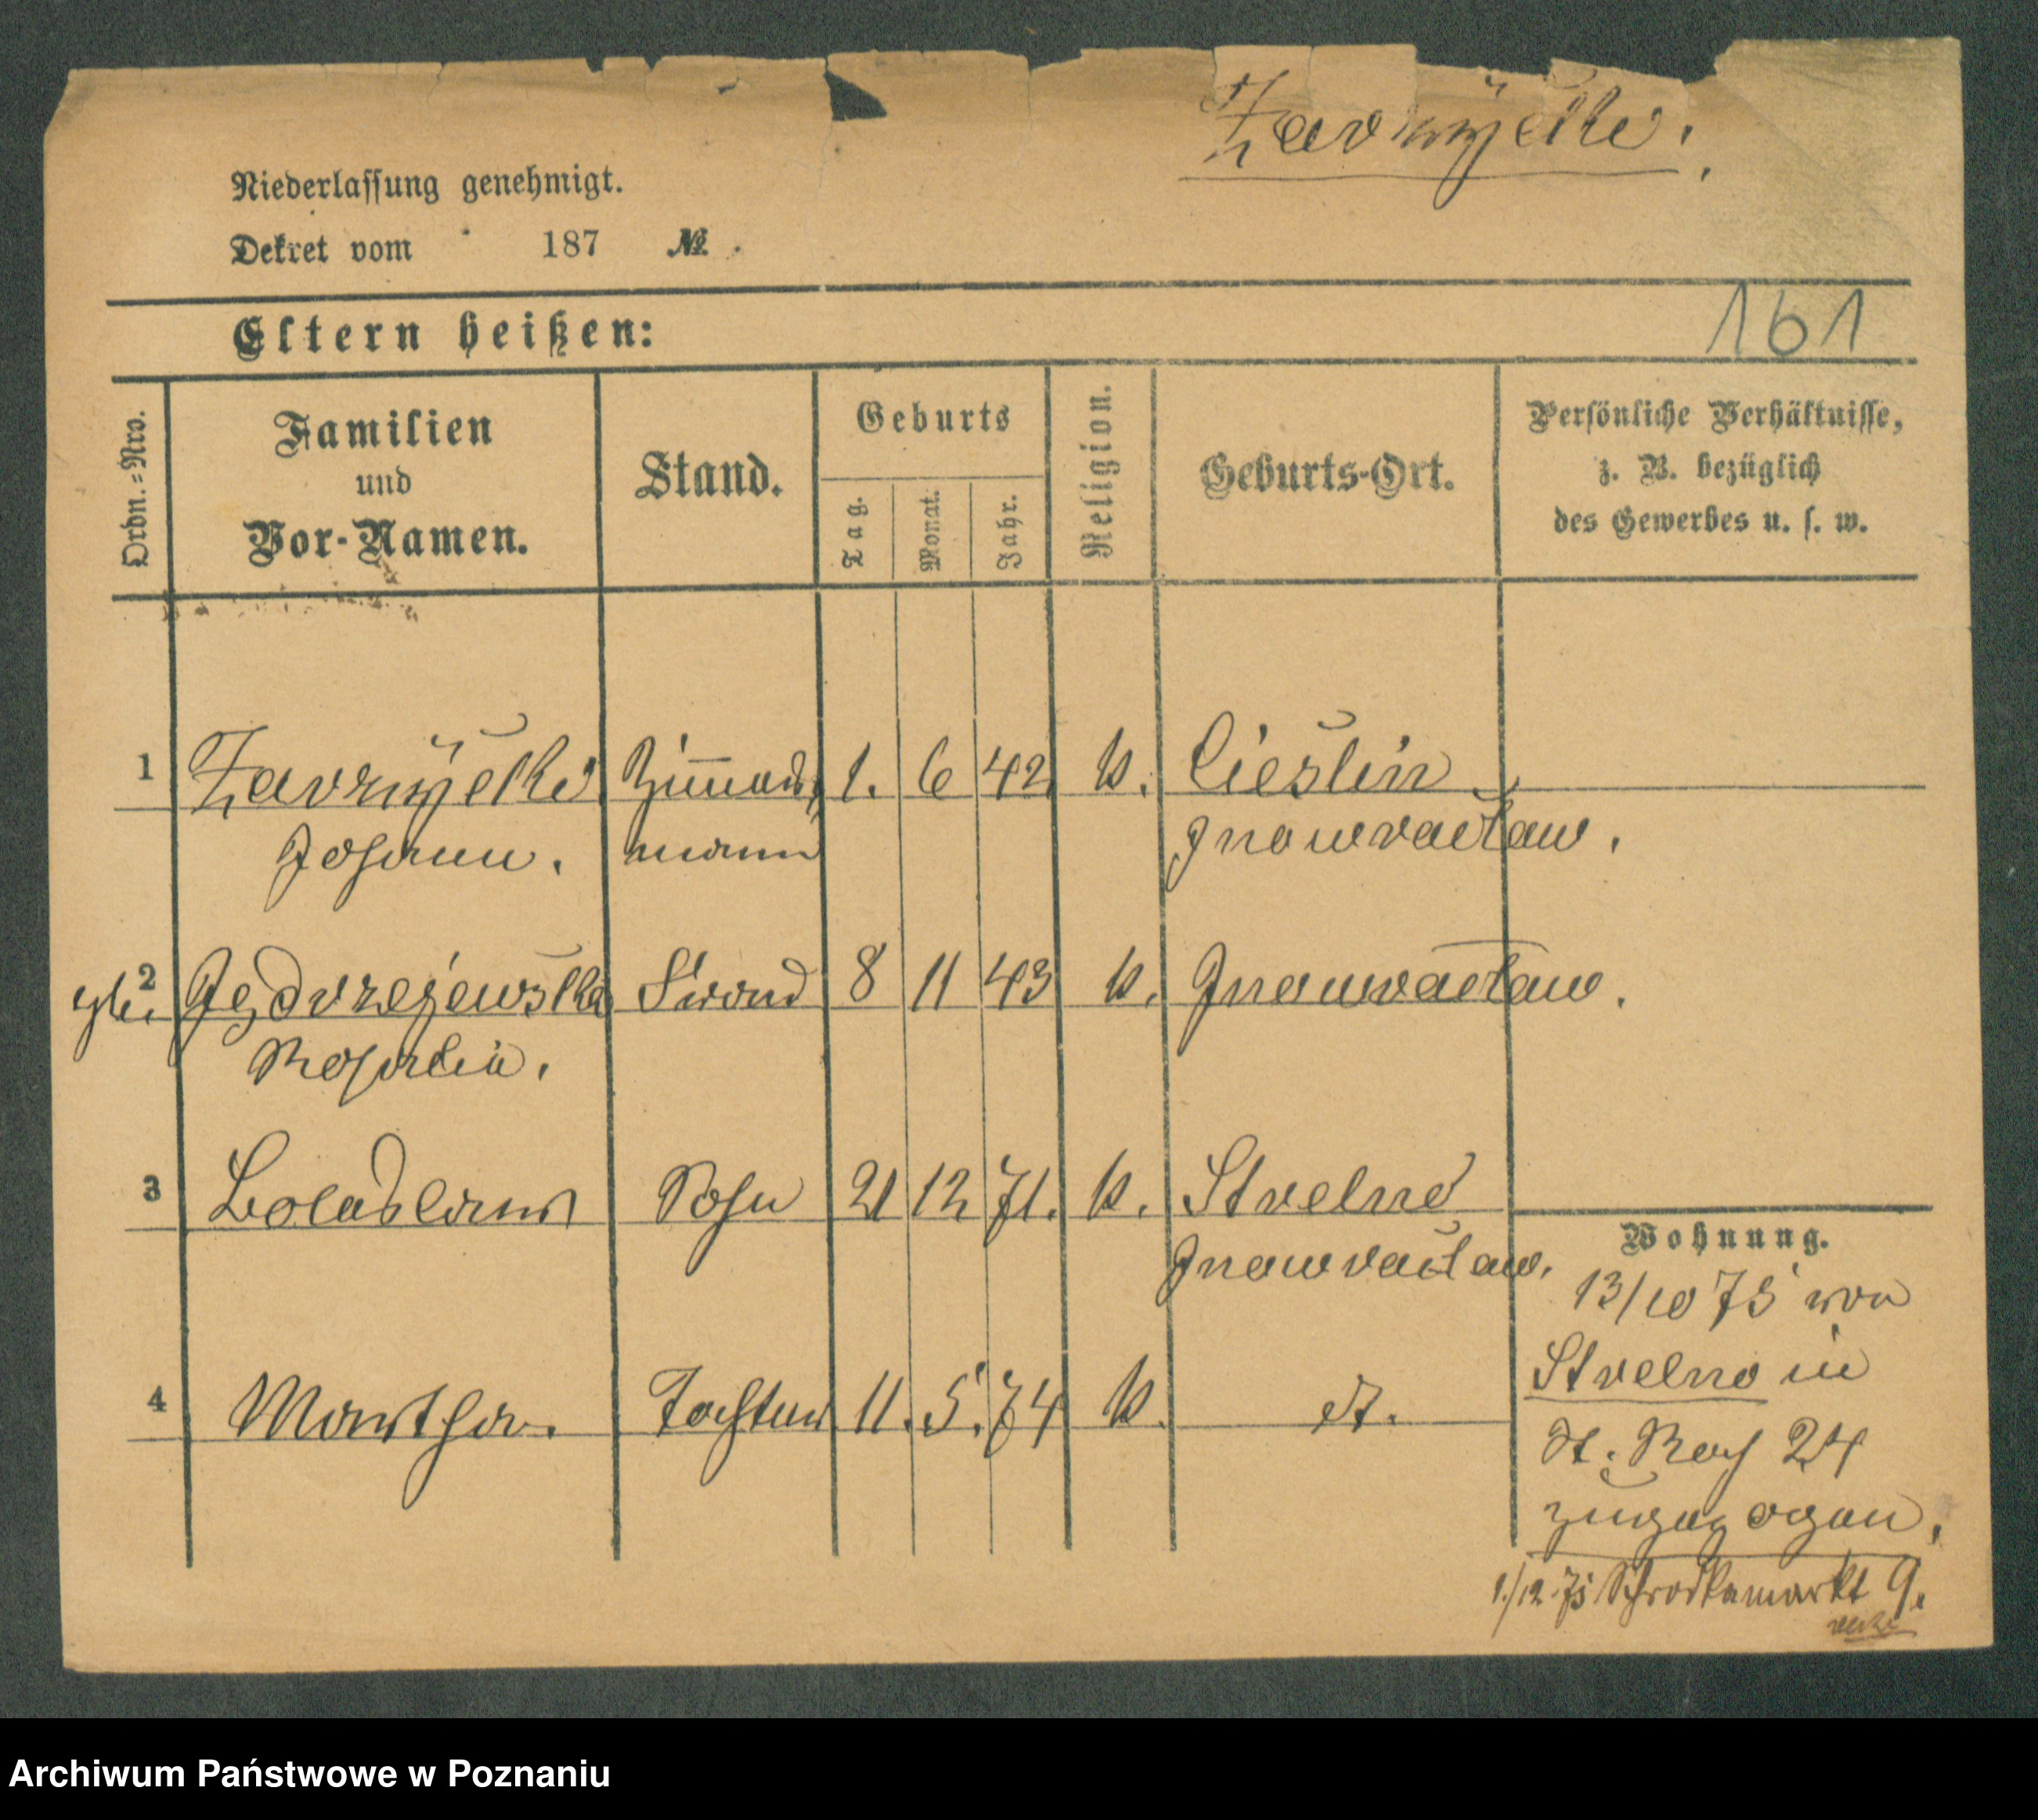 Niederlassung genehmigt.
Dekret vom 187 №
161
Eltern heißen:
Ordn.-Nro.
Familien
und
Vor-Namen.
Stand.
Geburts
Tag.
Monat.
Jahr.
Religion.
Geburts-Ort.
Persönliche Verhältnisse,
z. B. bezüglich
des Gewerbes u. s. w.
1 1. 6 42 k. Cieslin
Johann. mann Inowraclaw.
2 Jędrzejewska 8 11 43 k. Inowraclaw.
Rosalie.
3 Boleslaus Sohn 21 12 71. k. Strelno
Inowraclaw.
4 Martha. Tochter 11. 5. 74 k. dt.
Wohnung.
13/10 75 von
Strelno in
St. Roch 24
zugezogen.
1./12. 75 Schrodkamarkt 9.
Archiwum Państwowe w Poznaniu